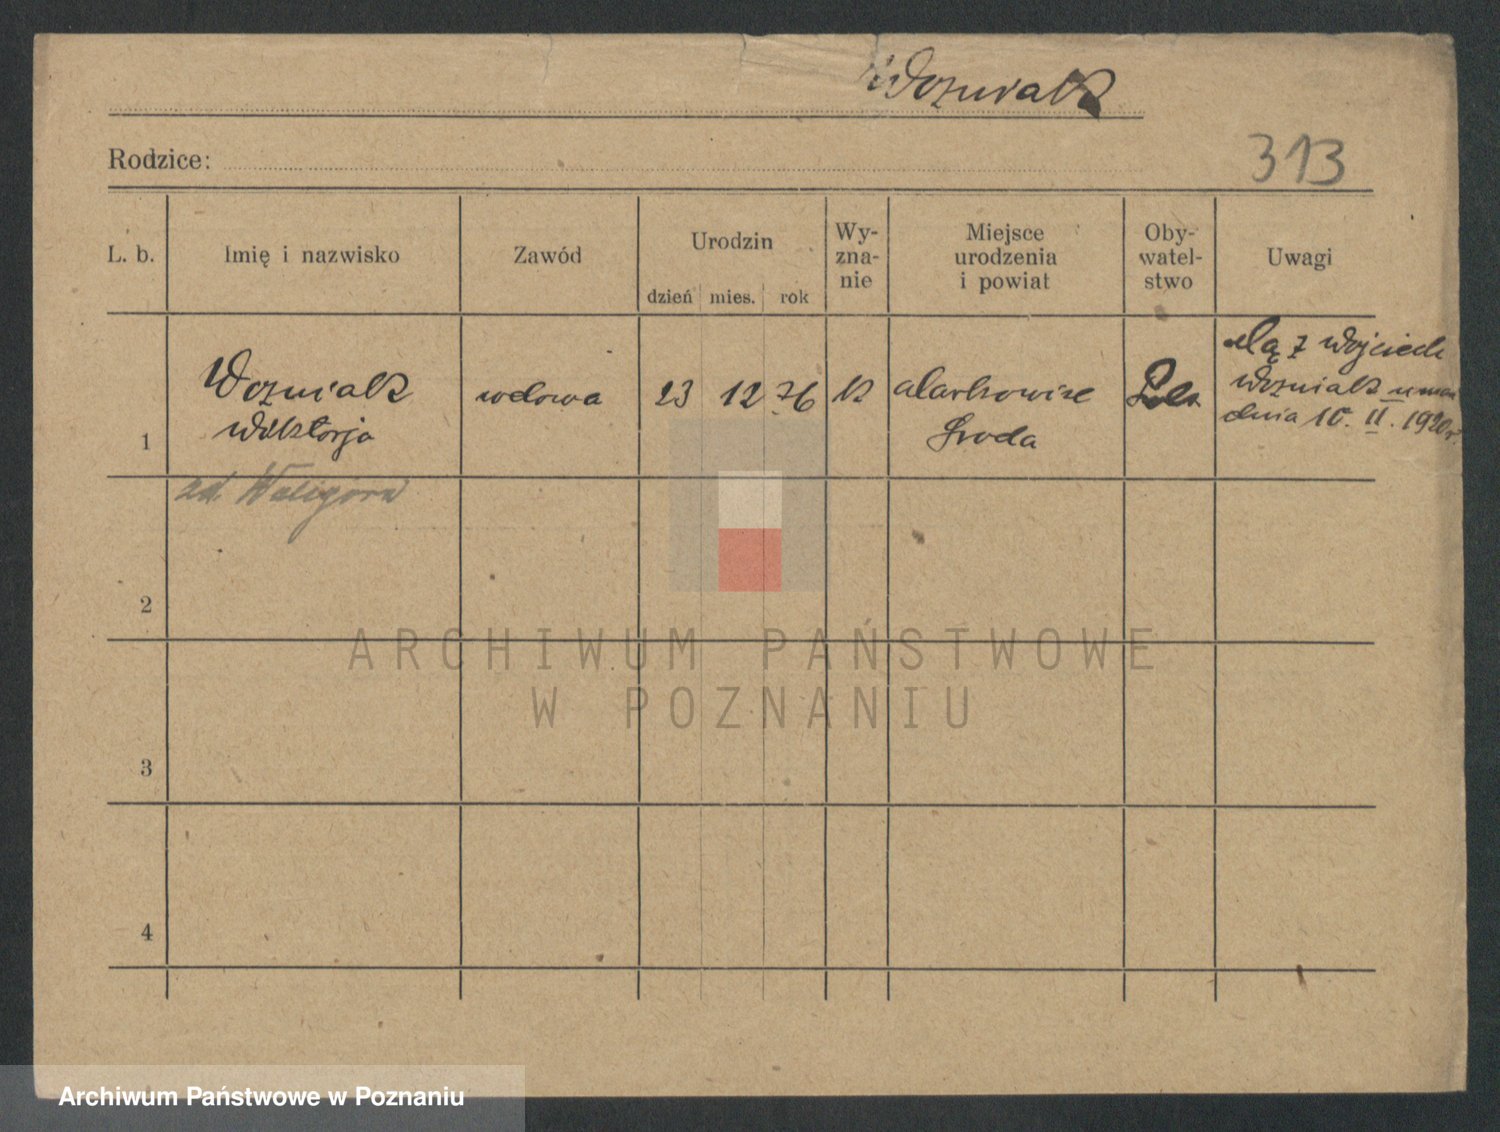 Wozniak
Rodzice:
313
L. b.
Imię i nazwisko
Zawód
Urodzin
dzień mies. rok
Wy-
zna-
nie
Miejsce
urodzenia
i powiat
Oby-
watel-
stwo
Uwagi
1
Wozniak
Wiktorja
wdowa
23 12 76
k
Markowice
Środa
Polsk
Mąż Wojciech
Wozniak umar
dnia 10. II. 1920 r.
zd. Waligóra
2
3
4
ARCHIWUM PAŃSTWOWE
W POZNANIU
Archiwum Państwowe w Poznaniu